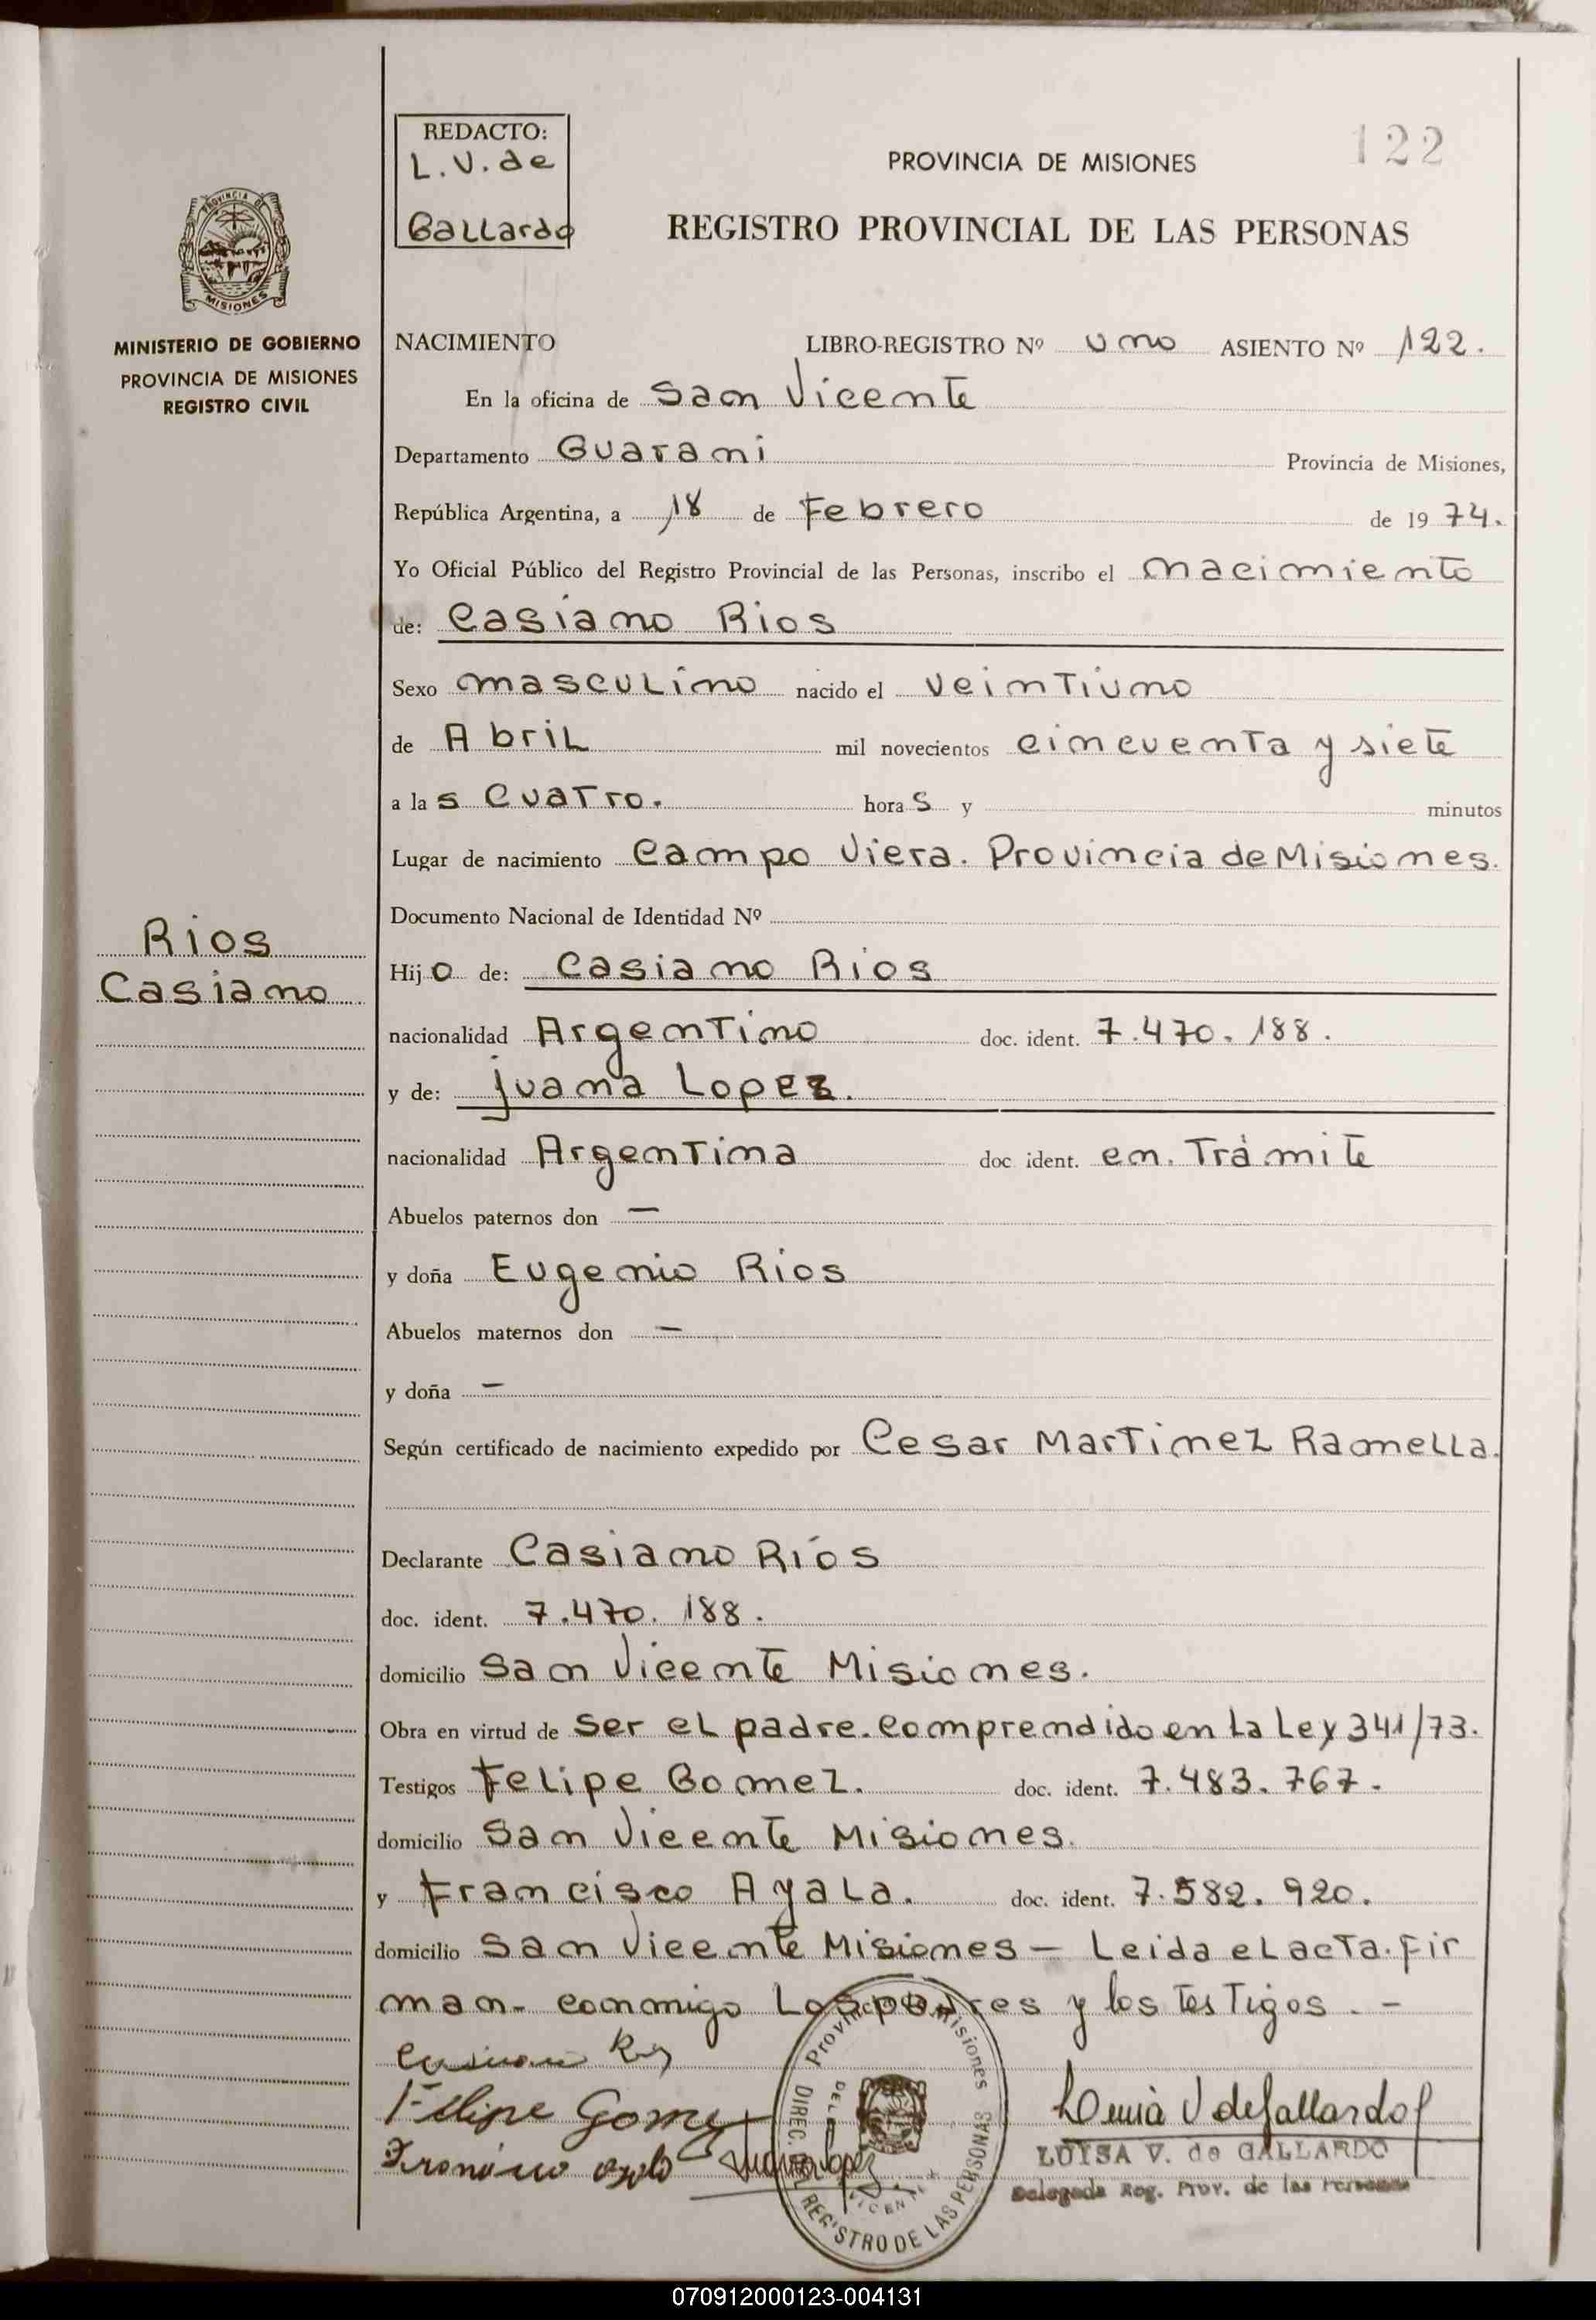 REDACTO:
L.V. de
Gallardo
122
PROVINCIA DE MISIONES
REGISTRO PROVINCIAL DE LAS PERSONAS
PROVINCIA DE
MISIONES
MINISTERIO DE GOBIERNO
PROVINCIA DE MISIONES
REGISTRO CIVIL
NACIMIENTO LIBRO-REGISTRO Nº uno ASIENTO Nº 122.
En la oficina de San Vicente
Departamento Guarani Provincia de Misiones,
República Argentina, a 18 de Febrero de 1974.
Yo Oficial Público del Registro Provincial de las Personas, inscribo el nacimiento
de: Casiano Rios
Sexo masculino nacido el veintiuno
de Abril mil novecientos cincuenta y siete
a las cuatro. horas y minutos
Lugar de nacimiento Campo Viera. Provincia de Misiones.
Documento Nacional de Identidad Nº
Rios
Casiano
Hijo de: Casiano Rios
nacionalidad Argentino doc. ident. 7.470.188.
y de: juana Lopez.
nacionalidad Argentina doc ident. en. Trámite
Abuelos paternos don —
y doña Eugenio Rios
Abuelos maternos don —
y doña —
Según certificado de nacimiento expedido por Cesar Martinez Ramella.
Declarante Casiano Ríos
doc. ident. 7.470.188.
domicilio San Vicente Misiones.
Obra en virtud de ser el padre. comprendido en la Ley 341/73.
Testigos Felipe Gomez. doc. ident. 7.483.767.
domicilio San Vicente Misiones.
y Francisco Ayala. doc. ident. 7.582.920.
domicilio San Vicente Misiones — Leida el acta. fir
man. conmigo Los padres y los testigos. -
Felipe Gomez
Juana Lopez
Provincia de Misiones
DIREC. DEL REGISTRO DE LAS PERSONAS
Luisa V de Gallardo
LUISA V. de GALLARDO
Delegada Reg. Prov. de las Personas
070912000123-004131